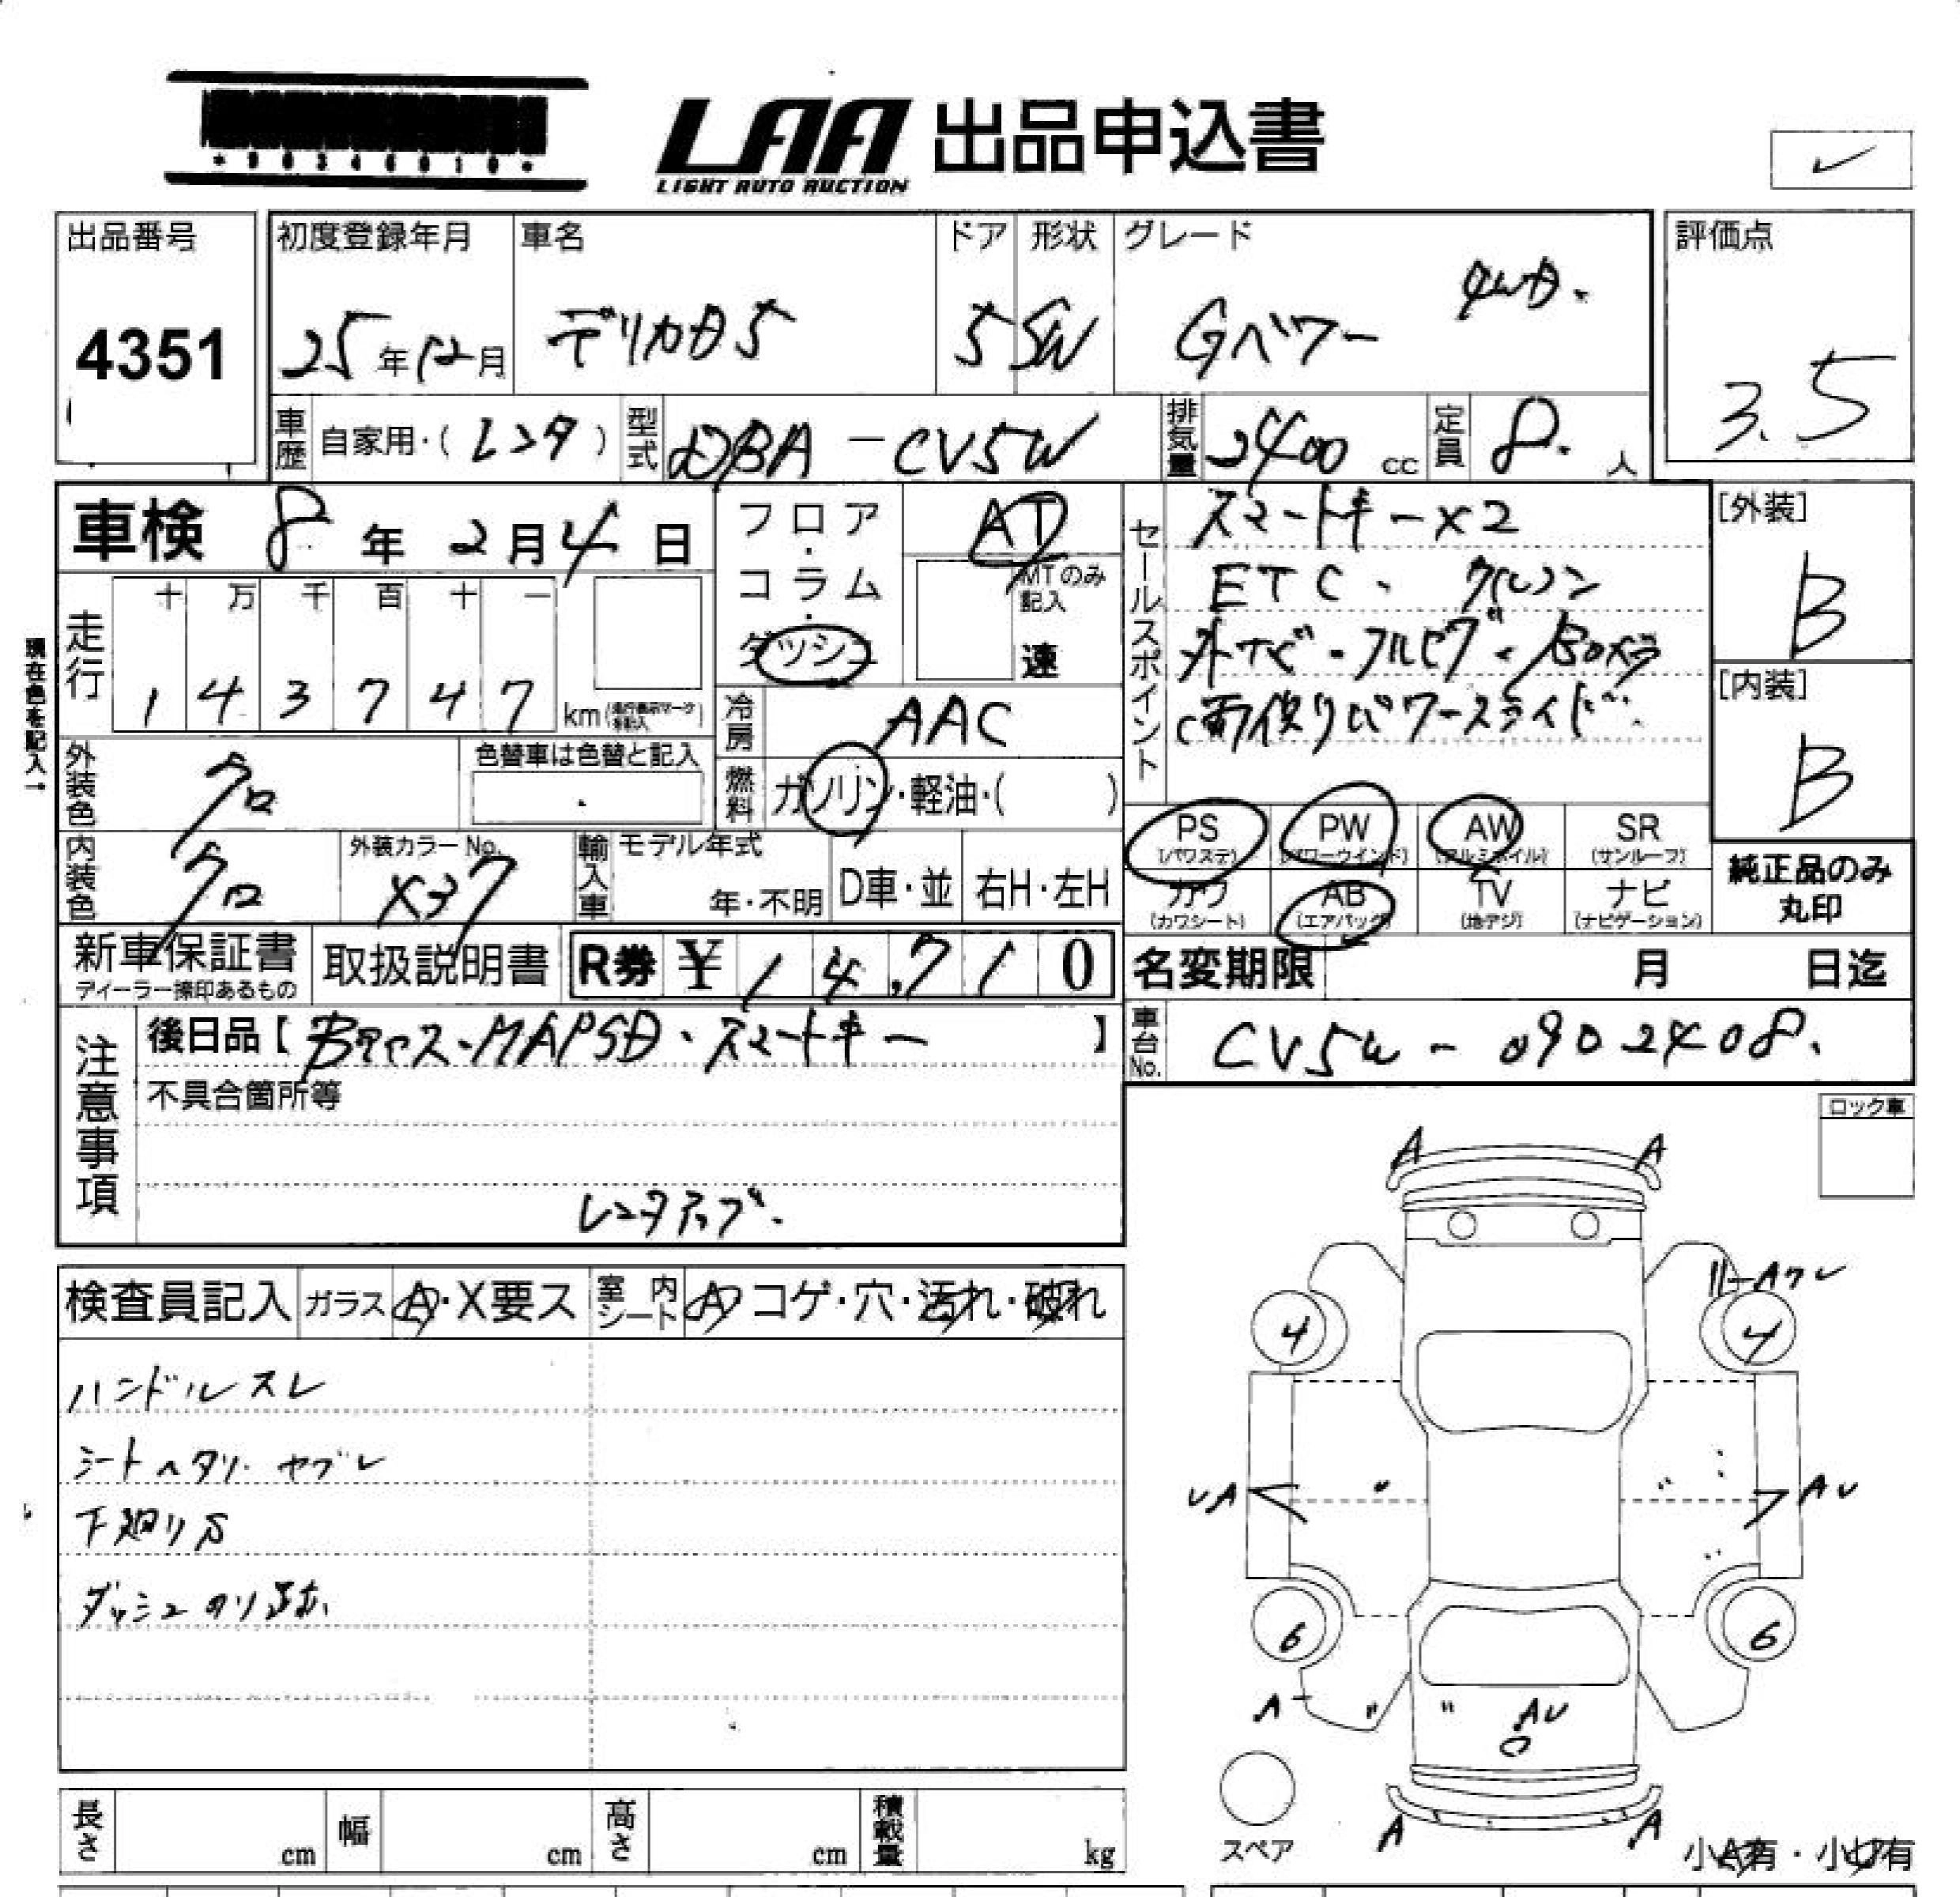 *90346010*
LAA 出品申込書
LIGHT AUTO AUCTION
出品番号 4351
初度登録年月 25年12月
車名 デリカD5
ドア 5
形状 SW
グレード Gパワー 4WD.
評価点 3.5
車歴 自家用・(レンタ)
型式 DBA-CV5W
排気量 2400 cc
定員 8. 人
車検 8年2月4日
フロア・コラム・ダッシュ
AT
MTのみ記入 速
セールスポイント
スマートキー×2
ETC、クルコン
外ナビ・フルセグ・Bカメラ
両側リパワースライド
[外装] B
[内装] B
現在色を記入→
走行 十 万 千 百 十 一
1 4 3 7 4 7 km
冷房 AAC
外装色 クロ
色替車は色替と記入
燃料 ガソリン・軽油・( )
PS (パワステ) PW (パワーウインド) AW (アルミホイル) SR (サンルーフ)
内装色 クロ
外装カラーNo. X37
輸入車 モデル年式 年・不明 D車・並 右H・左H
カワ (カワシート) AB (エアバッグ) TV (地デジ) ナビ (ナビゲーション)
純正品のみ丸印
新車保証書 ディーラー捺印あるもの
取扱説明書
R券 ¥ 14,710
名変期限 月 日迄
注意事項
後日品【 スマートキー 】
車台No. CV5W-0902408.
不具合箇所等
レンタアップ.
ロック車
検査員記入 ガラス A・X要ス 室内シート A コゲ・穴・汚れ・破れ
ハンドルスレ
シートヘタリ・ヤブレ
下廻りS
ダッシュのり跡
A A
4 4
UA AU
6 6
A
AU
スペア
A A
小A有・小U有
長さ cm 幅 cm 高さ cm 積載量 kg